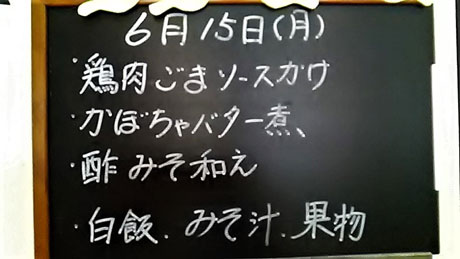 6月15日(月)
・鶏肉ごまソースがけ
・かぼちゃバター煮、
・酢みそ和え
・白飯.みそ汁.果物